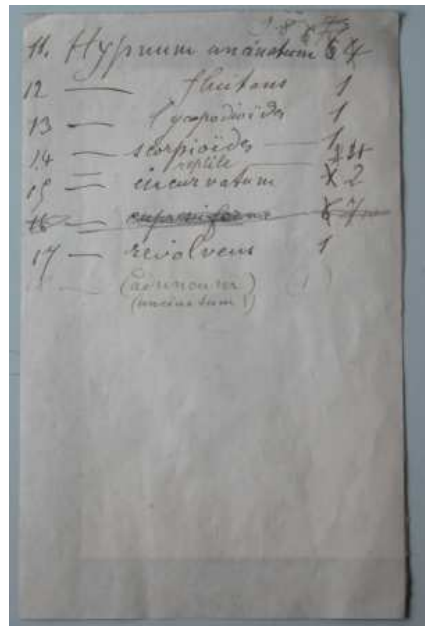 11. Hypnum uncinatum 6 4
12 — fluitans 1
13 — lycopodioïdes 1
14 — scorpioïdes — 1
reptile
15 — incurvatum X 2
16 — cupressiforme 7
17 — revolvens 1
— (aduncum) (1)
(uncinatum!)